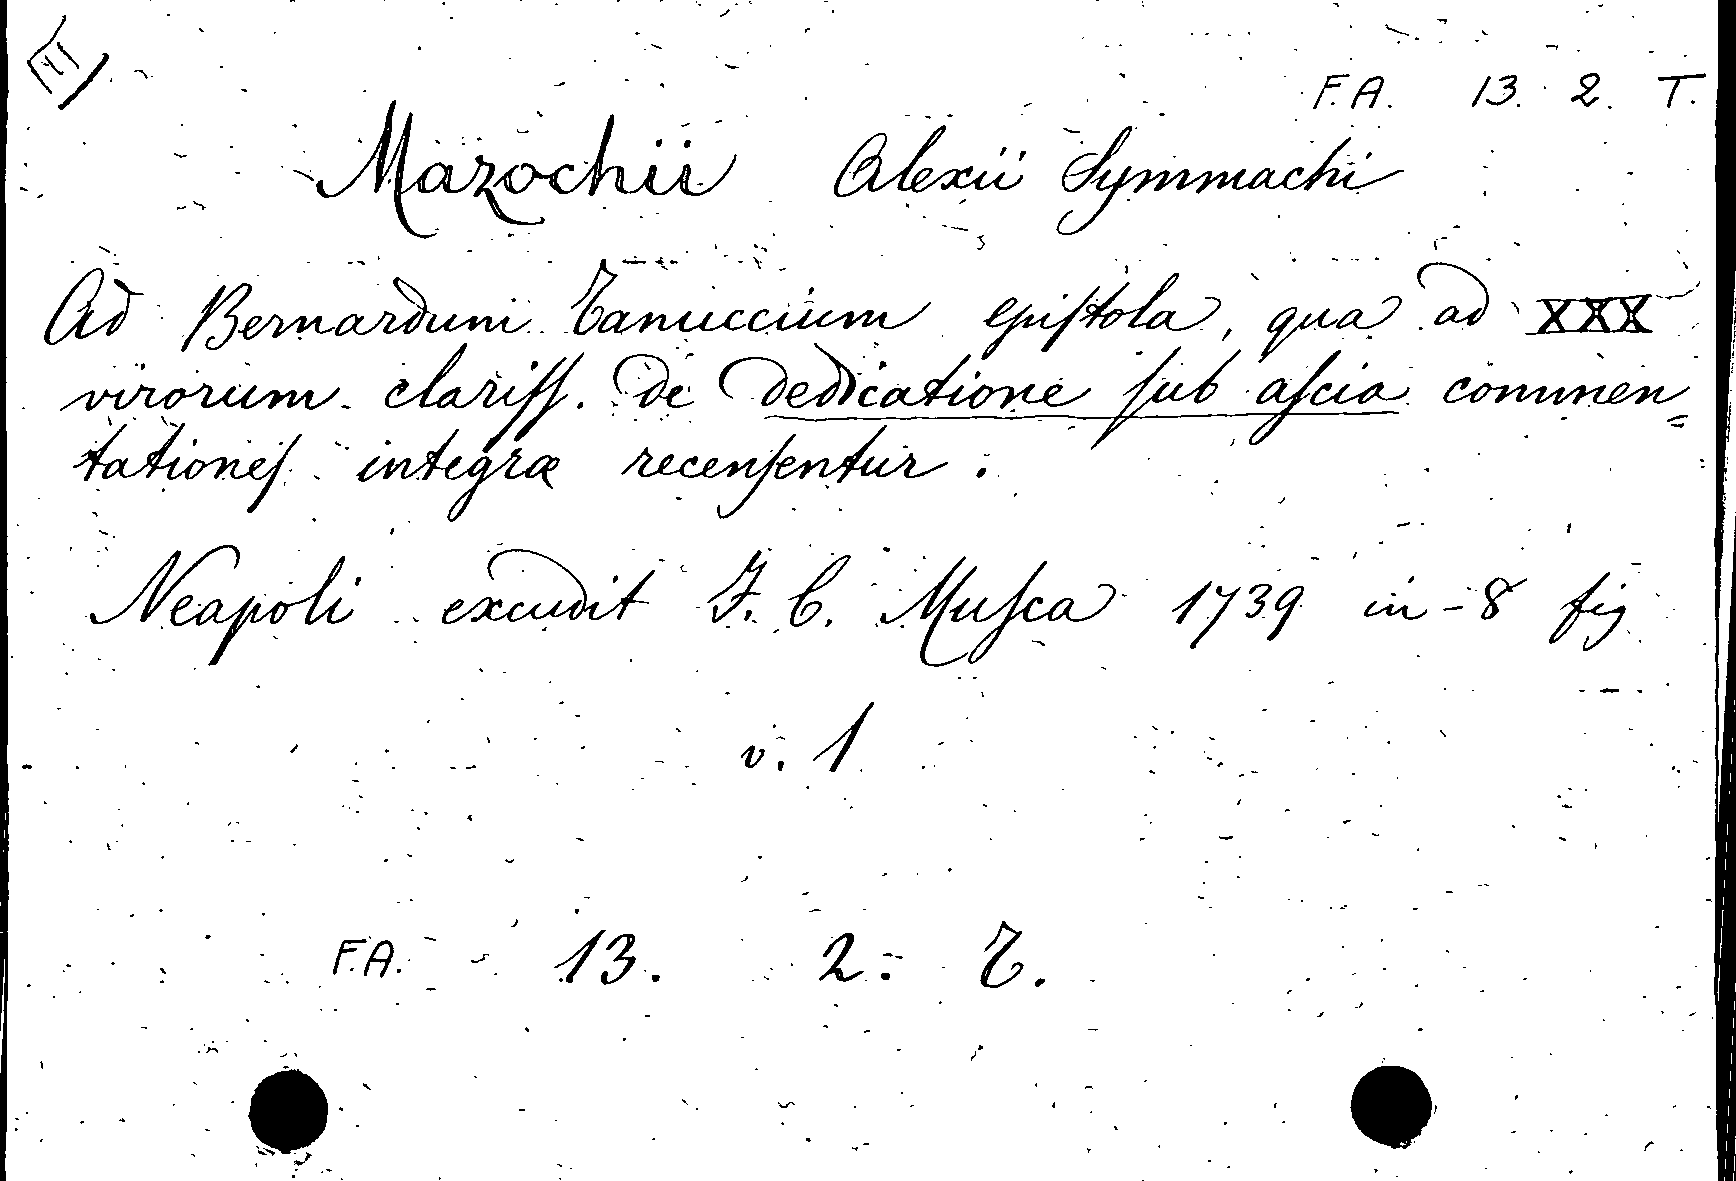 F.A. 13. 2. T.
Mazochii Alexii Symmachi
Ad Bernardum Tanuccium epistola, qua ad XXX
virorum clariss. de dedicatione sub ascia commen=
tationes integræ recensentur.
Neapoli excudit F. C. Musca 1739 in-8 fig
v. 1
F.A. 13. 2. T.